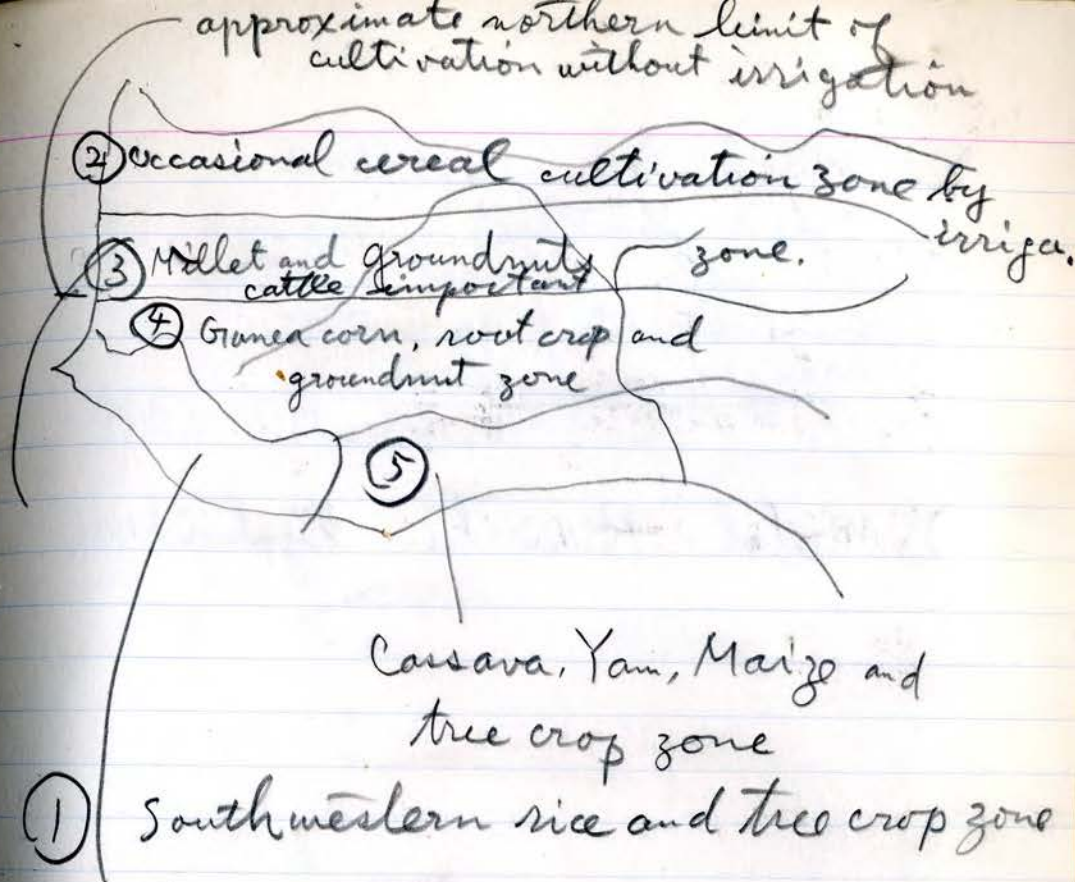 approximate northern limit of
cultivation without irrigation
② Occasional cereal cultivation zone by
irriga.
③ Millet and groundnuts zone.
cattle important
④ Guinea corn, root crop and
groundnut zone
⑤
Cassava, Yam, Maize and
tree crop zone
① Southwestern rice and tree crop zone